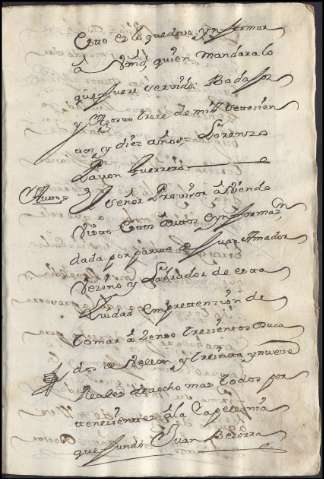 Esto es lo que devo ynformar
a Vmd quien mandara lo
que fuere servido. Badajoz
y Agosto trece de mil setecien
tos y diez años. Lorenzo
Pavon Guerrero
Auto El señor Provisor aviendo
visto estos autos e ynformaon
dada por parte de Juan Amador
vezino y labrador de esta
Ciudad en pretension de
tomar a zenso trescientos duca
dos de vellon y treinta y nueve
reales de ocho mas todos per
tenecientes a la Capellania
que fundo Juan Becerra